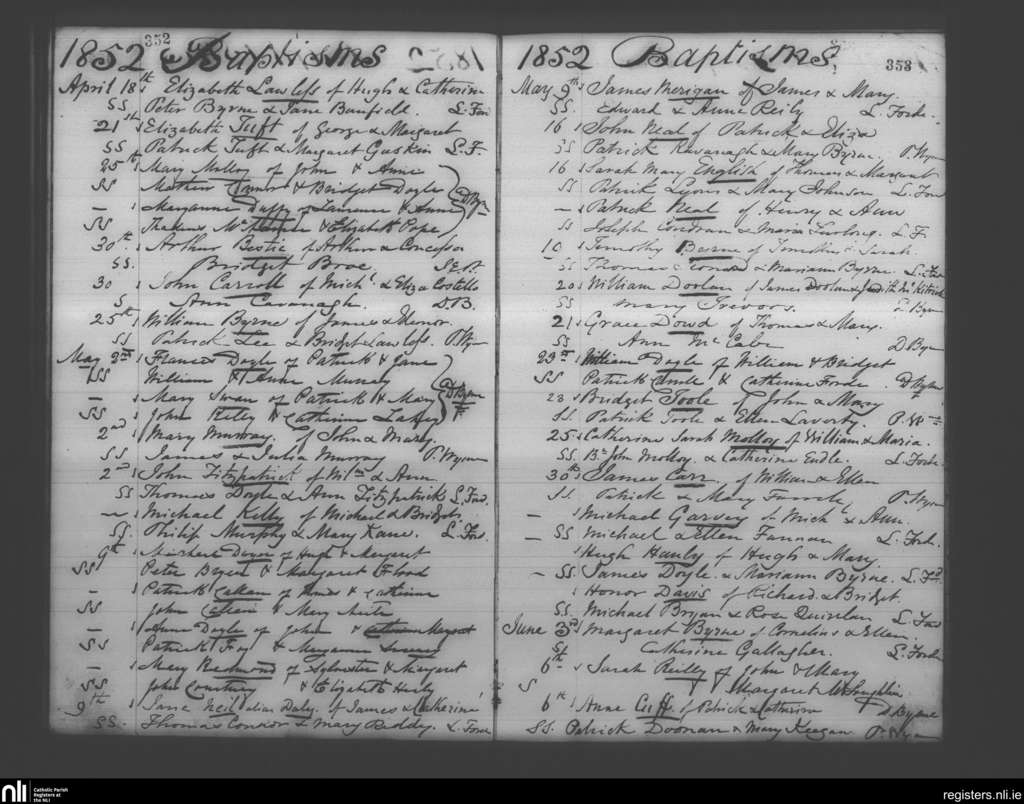 352
1852 Baptisms
April 18th Elizabeth Lawless of Hugh & Catherine
SS Peter Byrne & Jane Banfield. L. For
21st Elizabeth Tuft of George & Margaret
SS Patrick Tuft & Margaret Gaskin L.F.
25th Mary Molloy of John & Anne
SS Mathew Connor & Bridget Doyle
– Maryanne Duffy of Laurence & Anne D Byrne
SS Thadeus & Elizabeth Pope
30th Arthur Bestic of Arthur &
SS. Bridget Broe.
30 John Carroll of Michl & Eliza Costello
S Ann Cavanagh. D.B.
25th William Byrne of James &
SS Patrick Lee & Bridget Lawless. P. Wyn
May 2nd Frances Doyle of Patrick & Jane
SS William & Anne Murray
– Mary Swan of Patrick & Mary D Byrne
SS John Kelly & Catherine
2nd Mary Murray. of John & Mary.
SS James & Julia Murray P. Wynn
2nd John Fitzpatrick of Wm & Ann
SS Thomas Doyle & Ann Fitzpatrick L. For.
Michael Kelly of Michael & Bridget
SS. Philip Murphy & Mary Kane. L. For.
9th of Hugh & Margaret
SS Peter & Margaret Flood
– Patrick of & Catherine
SS John & Mary
– Anne Doyle of John & Margaret
SS Patrick Foy & Maryanne
– Mary Redmond of Sylvester & Margaret
SS John Courtney & Elizabeth
9th Jane Neil alias Daly. of James & Catherine
SS. Thomas Connor & Mary Reddy. L. Forde
353
1852 Baptisms,
May 9th James Merigan of James & Mary.
SS. Edward & Anne Reily L. Forde.
16 John Neal of Patrick & Eliza
SS Patrick Kavanagh & Mary Byrne. P. Wynn
16 Sarah Mary English of Thomas & Margaret
SS Patrick Lyons & Mary Johnson L. For
– Patrick Neal of Henry & Ann
SS Joseph Condran & Maria Furlong. L.F.
10 Timothy Byrne of & Sarah.
SS Thomas & Mariann Byrne. L. For
20 William Doolan of James Doolan &
SS Mary Trevors. D. Byrn
21 Grace Dowd of Thomas & Mary.
SS Ann McCabe D Byrn
23rd William Doyle of William & Bridget
SS Patrick & Catherine Forde. D Byrne
23 Bridget Toole of John & Mary
SS. Patrick Toole & Ellen Laverty. P. Wynn
25 Catherine Sarah Molloy of William & Maria.
SS. John Molloy. & Catherine L. Forde
30th James Carr. of William & Ellen
SS. Patrick & Mary P. Wynn
– Michael Garvey of Mich & Ann.
– SS Michael & Ellen Fannan L. Forde.
Hugh Hanly of Hugh & Mary.
– SS. James Doyle. & Mariann Byrne. L. Fd
Honor Davis of Richard. & Bridget
SS. Michael Bryan & Rose Quinlan L. For
June 3rd Margaret Byrne of Cornelius & Ellen.
SS Catherine Gallagher. L. Forde
6th Sarah Reilly of John & Mary
S Margaret McLoughlin
6th Anne Cuffe. of Patrick & Catherine D Byrne
SS. Patrick Doonan & Mary Keegan. P. Wynn
nli
Catholic Parish Registers at the NLI
registers.nli.ie